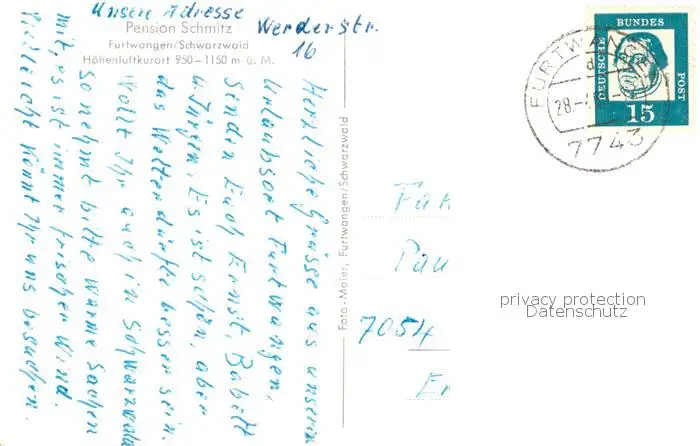 Unsere Adresse
Werderstr.
16
Pension Schmitz
Furtwangen/Schwarzwald
Höhenluftkurort 950–1150 m ü. M.
Herzliche Grüsse aus unserem
Urlaubsort Furtwangen,
senden Euch Ernst, Babett
u. Jürgen. Es ist schön, aber
das Wetter dürfte besser sein.
Wollt Ihr auch in Schwarzwald
so nehmt bitte warme Sachen
mit, es ist immer frischer Wind.
Vielleicht könnt Ihr uns besuchen.
Foto-Maier, Furtwangen/Schwarzwald
DEUTSCHE BUNDES POST
15
FURTWANGEN
28.
7743
Fam
Pau
7054
privacy protection
Datenschutz